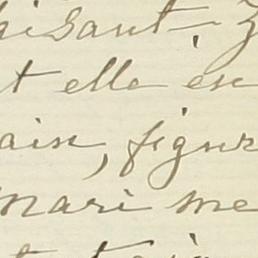 aisant. 
t elle en
ain, figure
mari me